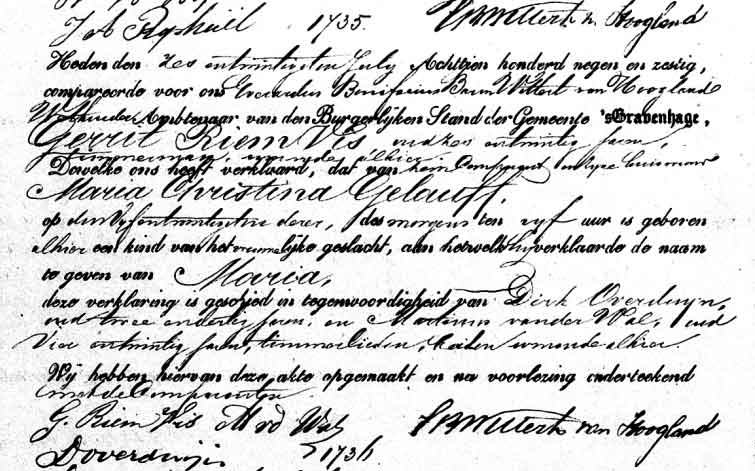 1735. van Hoogland
Heden den zes en twintigsten July Achttien honderd negen en zestig,
compareerde voor ons Everardus Bonifacius Wittert van Hoogland
Wethouder Ambtenaar van den Burgerlijken Stand der Gemeente 's Gravenhage,
Gerrit Riem Vis oud zes en twintig jaren,
timmerman, wonende alhier
Dewelke ons heeft verklaard, dat van hem Comparant en zijne huisvrouw
Maria Christina Gelauff,
op den vyfentwintigsten dezer, des morgens ten vyf uur is geboren
alhier een kind van het vrouwelijke geslacht, aan hetwelk hij verklaarde de naam
te geven van Maria,
deze verklaring is geschied in tegenwoordigheid van Dirk Overduyn,
oud twee en dertig jaren, en Martinus van der Wal, oud
vier en twintig jaren, timmerlieden, beiden wonende alhier.
Wij hebben hiervan deze akte opgemaakt en na voorlezing onderteekend
met de Comparanten
G. Riem Vis M vd Wal Wittert van Hoogland
D Overduijn 1736